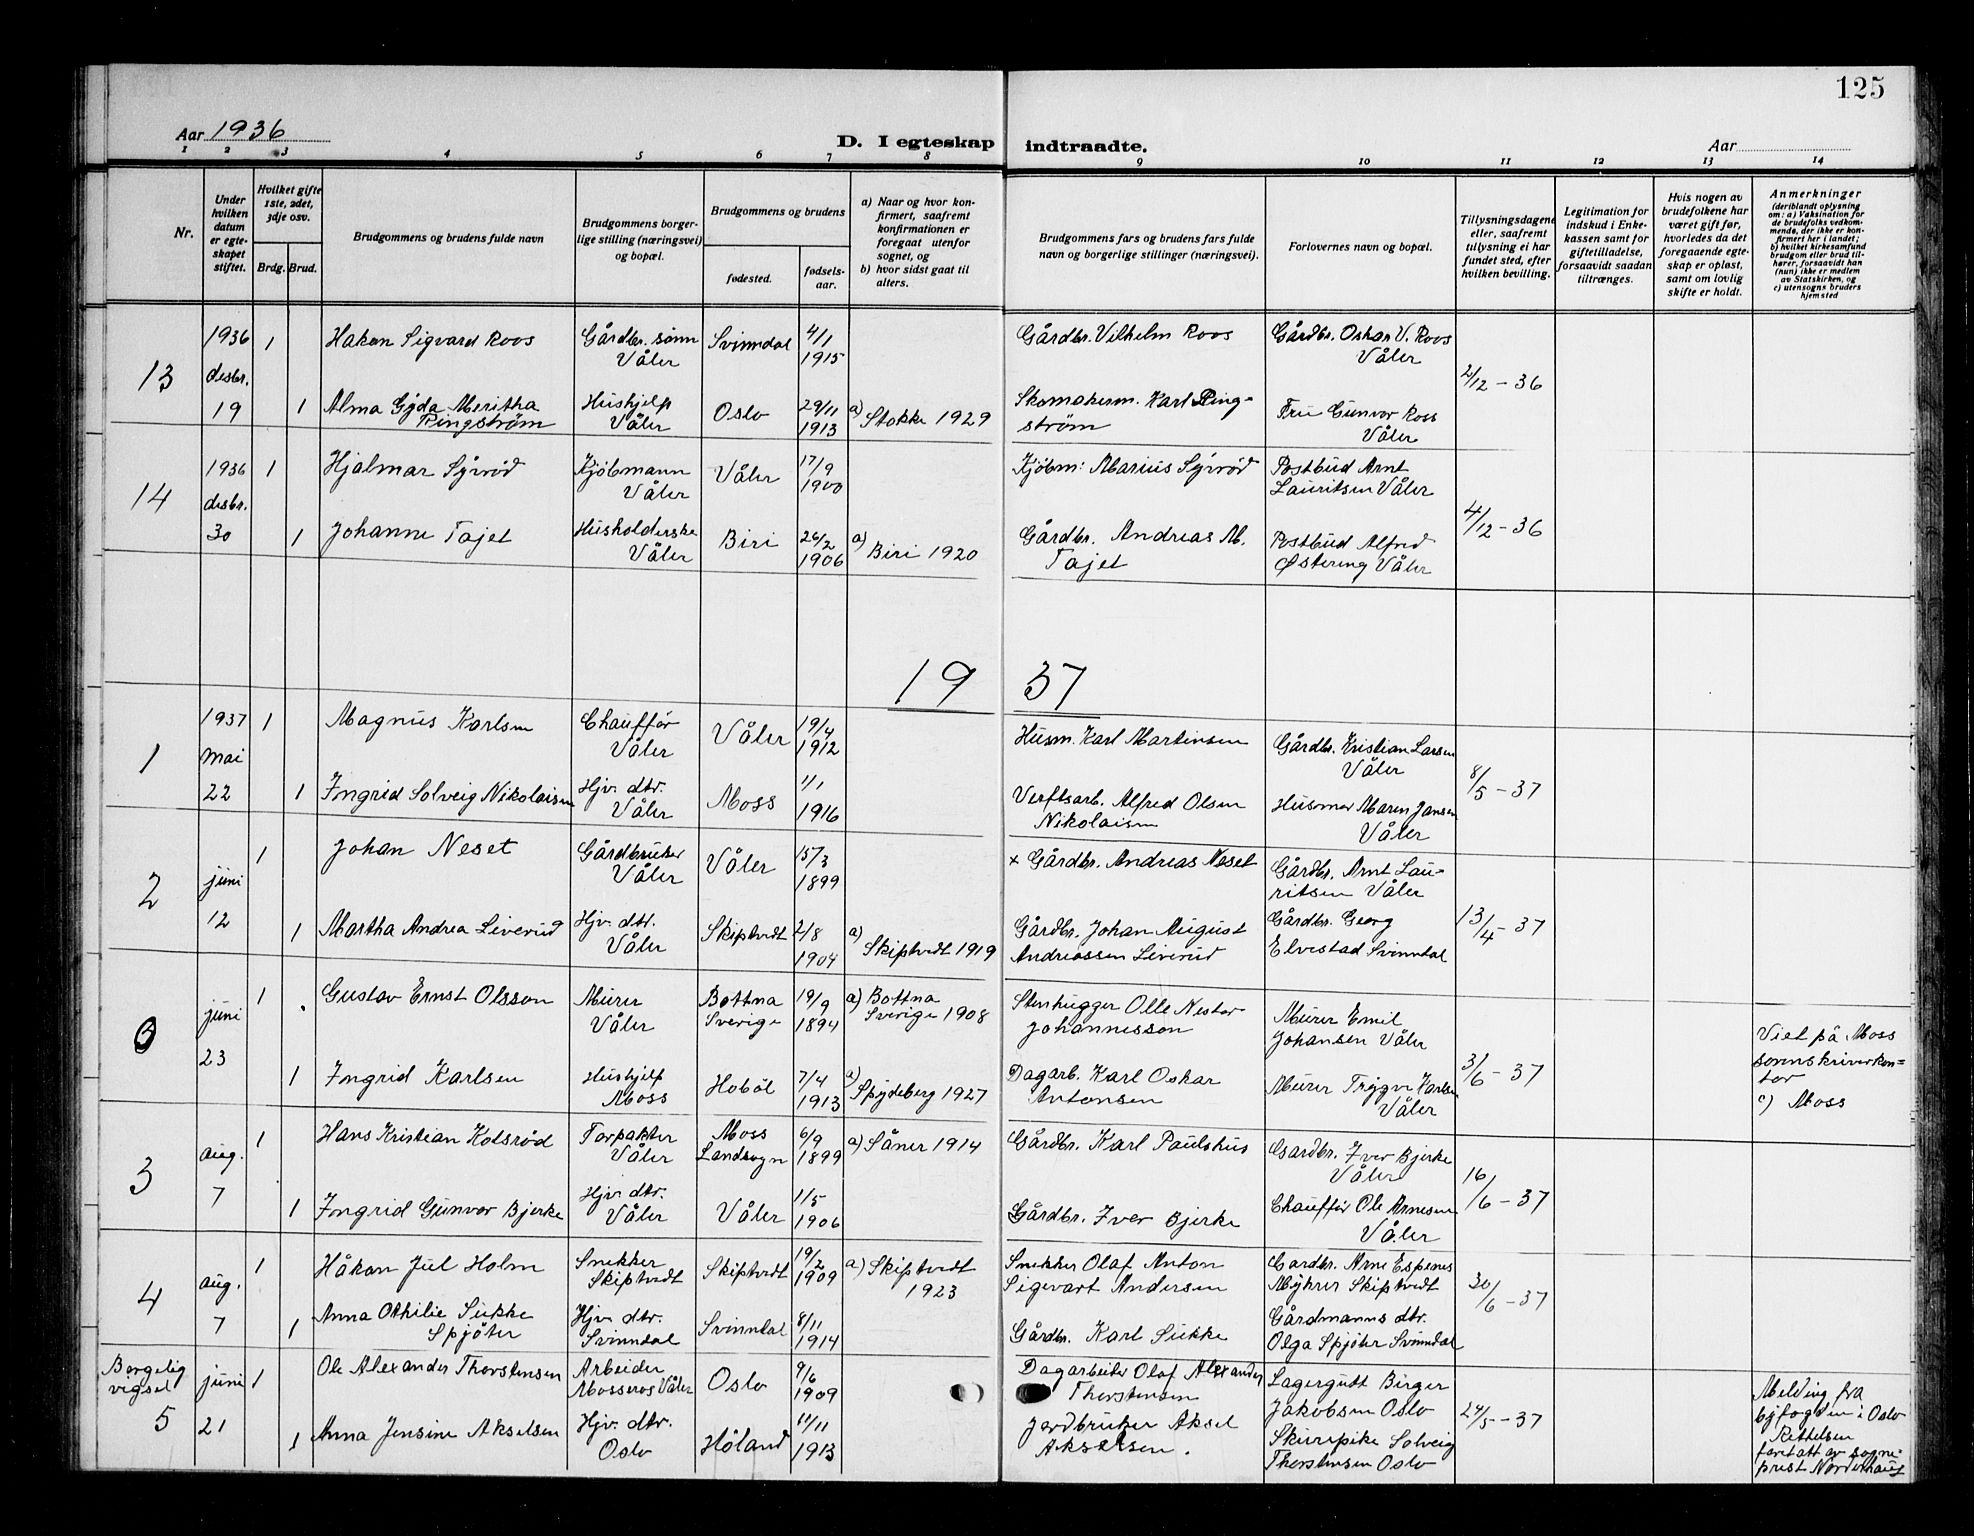 125
Aar 1936
D. I egteskap indtraadte.
Aar
1 2 3 4 5 6 7 8 9 10 11 12 13 14
Nr.
Under hvilken datum er egteskapet stiftet.
Hvilket gifte 1ste, 2det, 3dje osv.
Brdg. Brud.
Brudgommens og brudens fulde navn
Brudgommens borgerlige stilling (næringsvei) og bopæl.
Brudgommens og brudens
fødested.
fødselsaar.
a) Naar og hvor konfirmert, saafremt konfirmationen er foregaat utenfor sognet, og
b) hvor sidst gaat til alters.
Brudgommens fars og brudens fars fulde navn og borgerlige stillinger (næringsvei).
Forlovernes navn og bopæl.
Tillysningsdagene eller, saafremt tillysning ei har fundet sted, efter hvilken bevilling.
Legitimation for indskud i Enkekassen samt for giftetilladelse, forsaavidt saadan tiltrænges.
Hvis nogen av brudefolkene har været gift før, hvorledes da det foregaaende egteskap er opløst, samt om lovlig skifte er holdt.
Anmerkninger
(deriblandt oplysning om: a) Vaksination for de brudefolks vedkommende, der ikke er konfirmert her i landet; b) hvilket kirkesamfund brudgom eller brud tilhører, forsaavidt han (hun) ikke er medlem av Statskirken, og c) utensogns bruders hjemsted
13
1936 desbr. 19
1 Hakon Sigvard Roos
Gårdbr. sønn Våler
Svinndal
4/1 1915
Gårdbr. Vilhelm Roos
Gårdbr. Oskar V. Roos Våler
2/12 - 36
1 Alma Gyda Meritha Ringstrøm
Hushjelp Våler
Oslo
29/11 1913
a) Stokke 1929
Skomakerm. Karl Ringstrøm
Fru Gunvor Roos Våler
14
1936 desbr. 30
1 Hjalmar Syrrød
Kjøbmann Våler
Våler
17/9 1900
Kjøbm: Marius Syrrød
Postbud Arnt Lauritsen Våler
4/12 - 36
1 Johanne Tajet
Husholderske Våler
Biri
26/2 1906
a) Biri 1920
Gårdbr. Andreas M. Tajet
Postbud Alfred Østereng Våler
1937
1
1937 mai 22
1 Magnus Karlsen
Chauffør Våler
Våler
19/4 1912
Husm. Karl Martinsen
Gårdbr. Kristian Larsen Våler
8/5 - 37
1 Ingrid Solveig Nikolaisen
Hjv. dtr. Våler
Moss
1/1 1916
Verftsarb. Alfred Olsen Nikolaisen
Husmor Maren Jansen Våler
2
juni 12
1 Johan Neset
Gårdbruker Våler
Våler
15/3 1899
x Gårdbr. Andreas Neset
Gårdbr. Arnt Lauritsen Våler
13/4 - 37
1 Martha Andrea Liverud
Hjv. dtr. Våler
Skiptvedt
2/8 1904
a) Skiptvedt 1919
Gårdbr. Johan August Andreassen Liverud
Gårdbr. Georg Elvestad Svinndal
juni 23
1 Gustav Ernst Olsson
Murer Våler
Bottna Sverige
19/9 1894
a) Bottna Sverige 1908
Stenhugger Olle Nestor Johannesson
Murer Emil Johansen Våler
3/6 - 37
Viet på Moss sorenskriverkontor
c) Moss
1 Ingrid Karlsen
Hushjelp Moss
Hobøl
7/4 1913
a) Spydeberg 1927
Dagarb. Karl Oskar Antonsen
Murer Trygve Karlsen Våler
3
aug. 7
1 Hans Kristian Kolsrød
Forpakter Våler
Moss Landsogn
6/9 1899
a) Såner 1914
Gårdbr. Karl Paulshus
Gaardbr. Iver Bjerke Våler
16/6 - 37
1 Ingrid Gunvor Bjerke
Hjv. dtr. Våler
Våler
1/5 1906
Gårdbr. Iver Bjerke
Chauffør Ole Arnesen Våler
4
aug. 7
1 Håkon Jul Holm
Snekker Skiptvedt
Skiptvedt
19/2 1909
a) Skiptvedt 1923
Snekker Olaf Anton Sigevart Andersen
Gardbr. Arne Espenes Myhrer Skiptvedt
30/6 - 37
1 Anna Othilie Sukke Spjøter
Hjv. dtr. Svinndal
Svinndal
8/11 1914
Gårdbr. Karl Sukke
Gårdmanns dtr. Olga Spjøter Svinndal
Borgelig vigsel
5
juni 21
1 Ole Alexander Thorstensen
Arbeider Mosseros Våler
Oslo
9/6 1909
Dagarbeider Olaf Alexander Thorstensen
Lagergutt Birger Jakobsen Oslo
24/5 - 37
Melding fra byfogden i Oslo
Rettelsen foretatt av sogneprest Norderhaug
1 Anna Jensine Akselsen
Hjv. dtr. Oslo
Høland
11/11 1913
Jordbruker Aksel Akselsen.
Skurepike Solveig Thorstensen Oslo